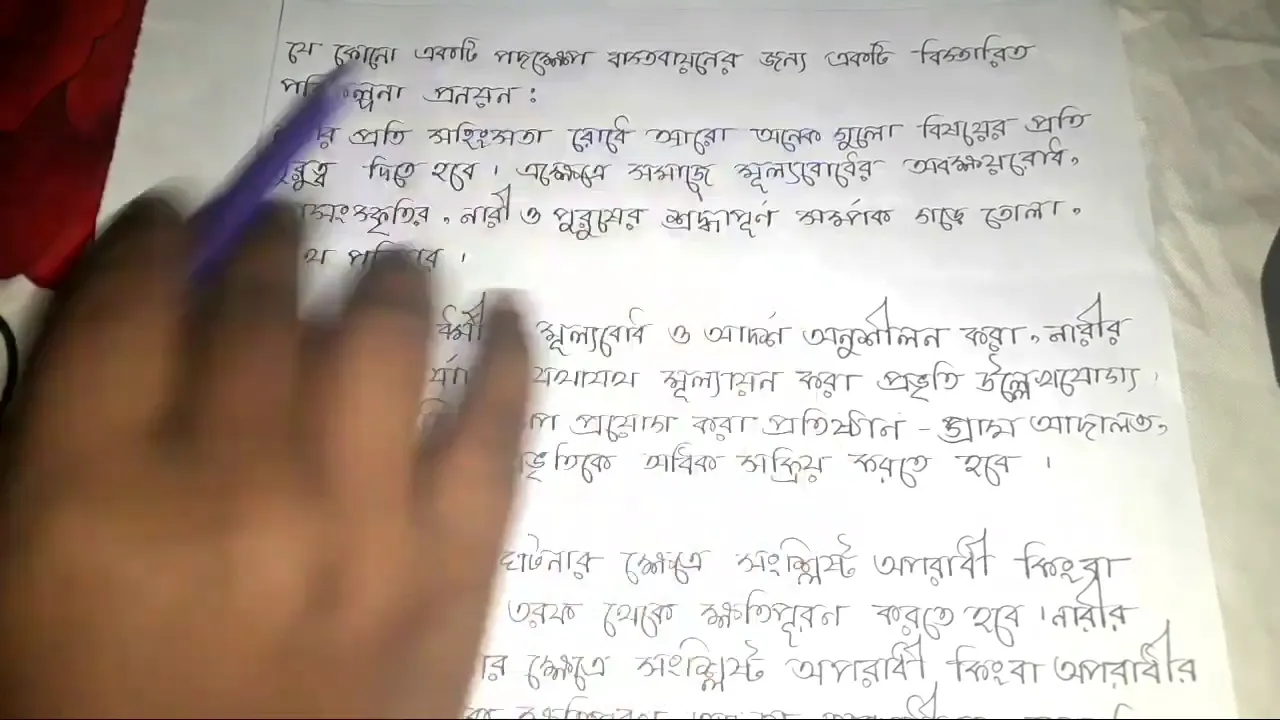 যে কোনো একটি পদক্ষেপ বাস্তবায়নের জন্য একটি বিস্তারিত
প্রনয়ন :
প্রতি সহিংসতা রোধে আরো অনেক গুলো বিষয়ের প্রতি
দিতে হবে । এক্ষেত্রে সমাজে মূল্যবোধের অবক্ষয়রোধ,
নারী ও পুরুষের শ্রদ্ধাপূর্ন সর্ম্পক গড়ে তোলা,
মূল্যবোধ ও আদর্শ অনুশীলন করা, নারীর
যথাযথ মূল্যায়ন করা প্রভৃতি উল্লেখযোগ্য ।
প্রয়োগ করা প্রতিষ্ঠান - গ্রাম্য আদালত,
অধিক সক্রিয় করতে হবে ।
ঘটনার ক্ষেত্রে সংশ্লিষ্ট অপরাধী কিংবা
তরফ থেকে ক্ষতিপূরন করতে হবে । নারীর
ক্ষেত্রে সংশ্লিষ্ট অপরাধী কিংবা অপরাধীর